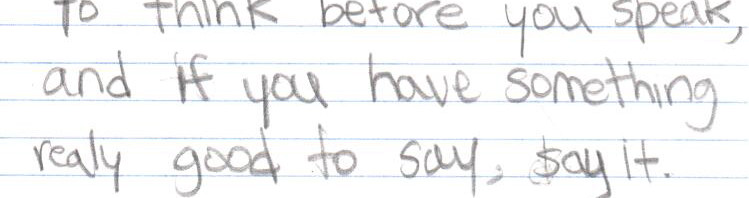 to think before you speak,
and if you have something
realy good to say, say it.